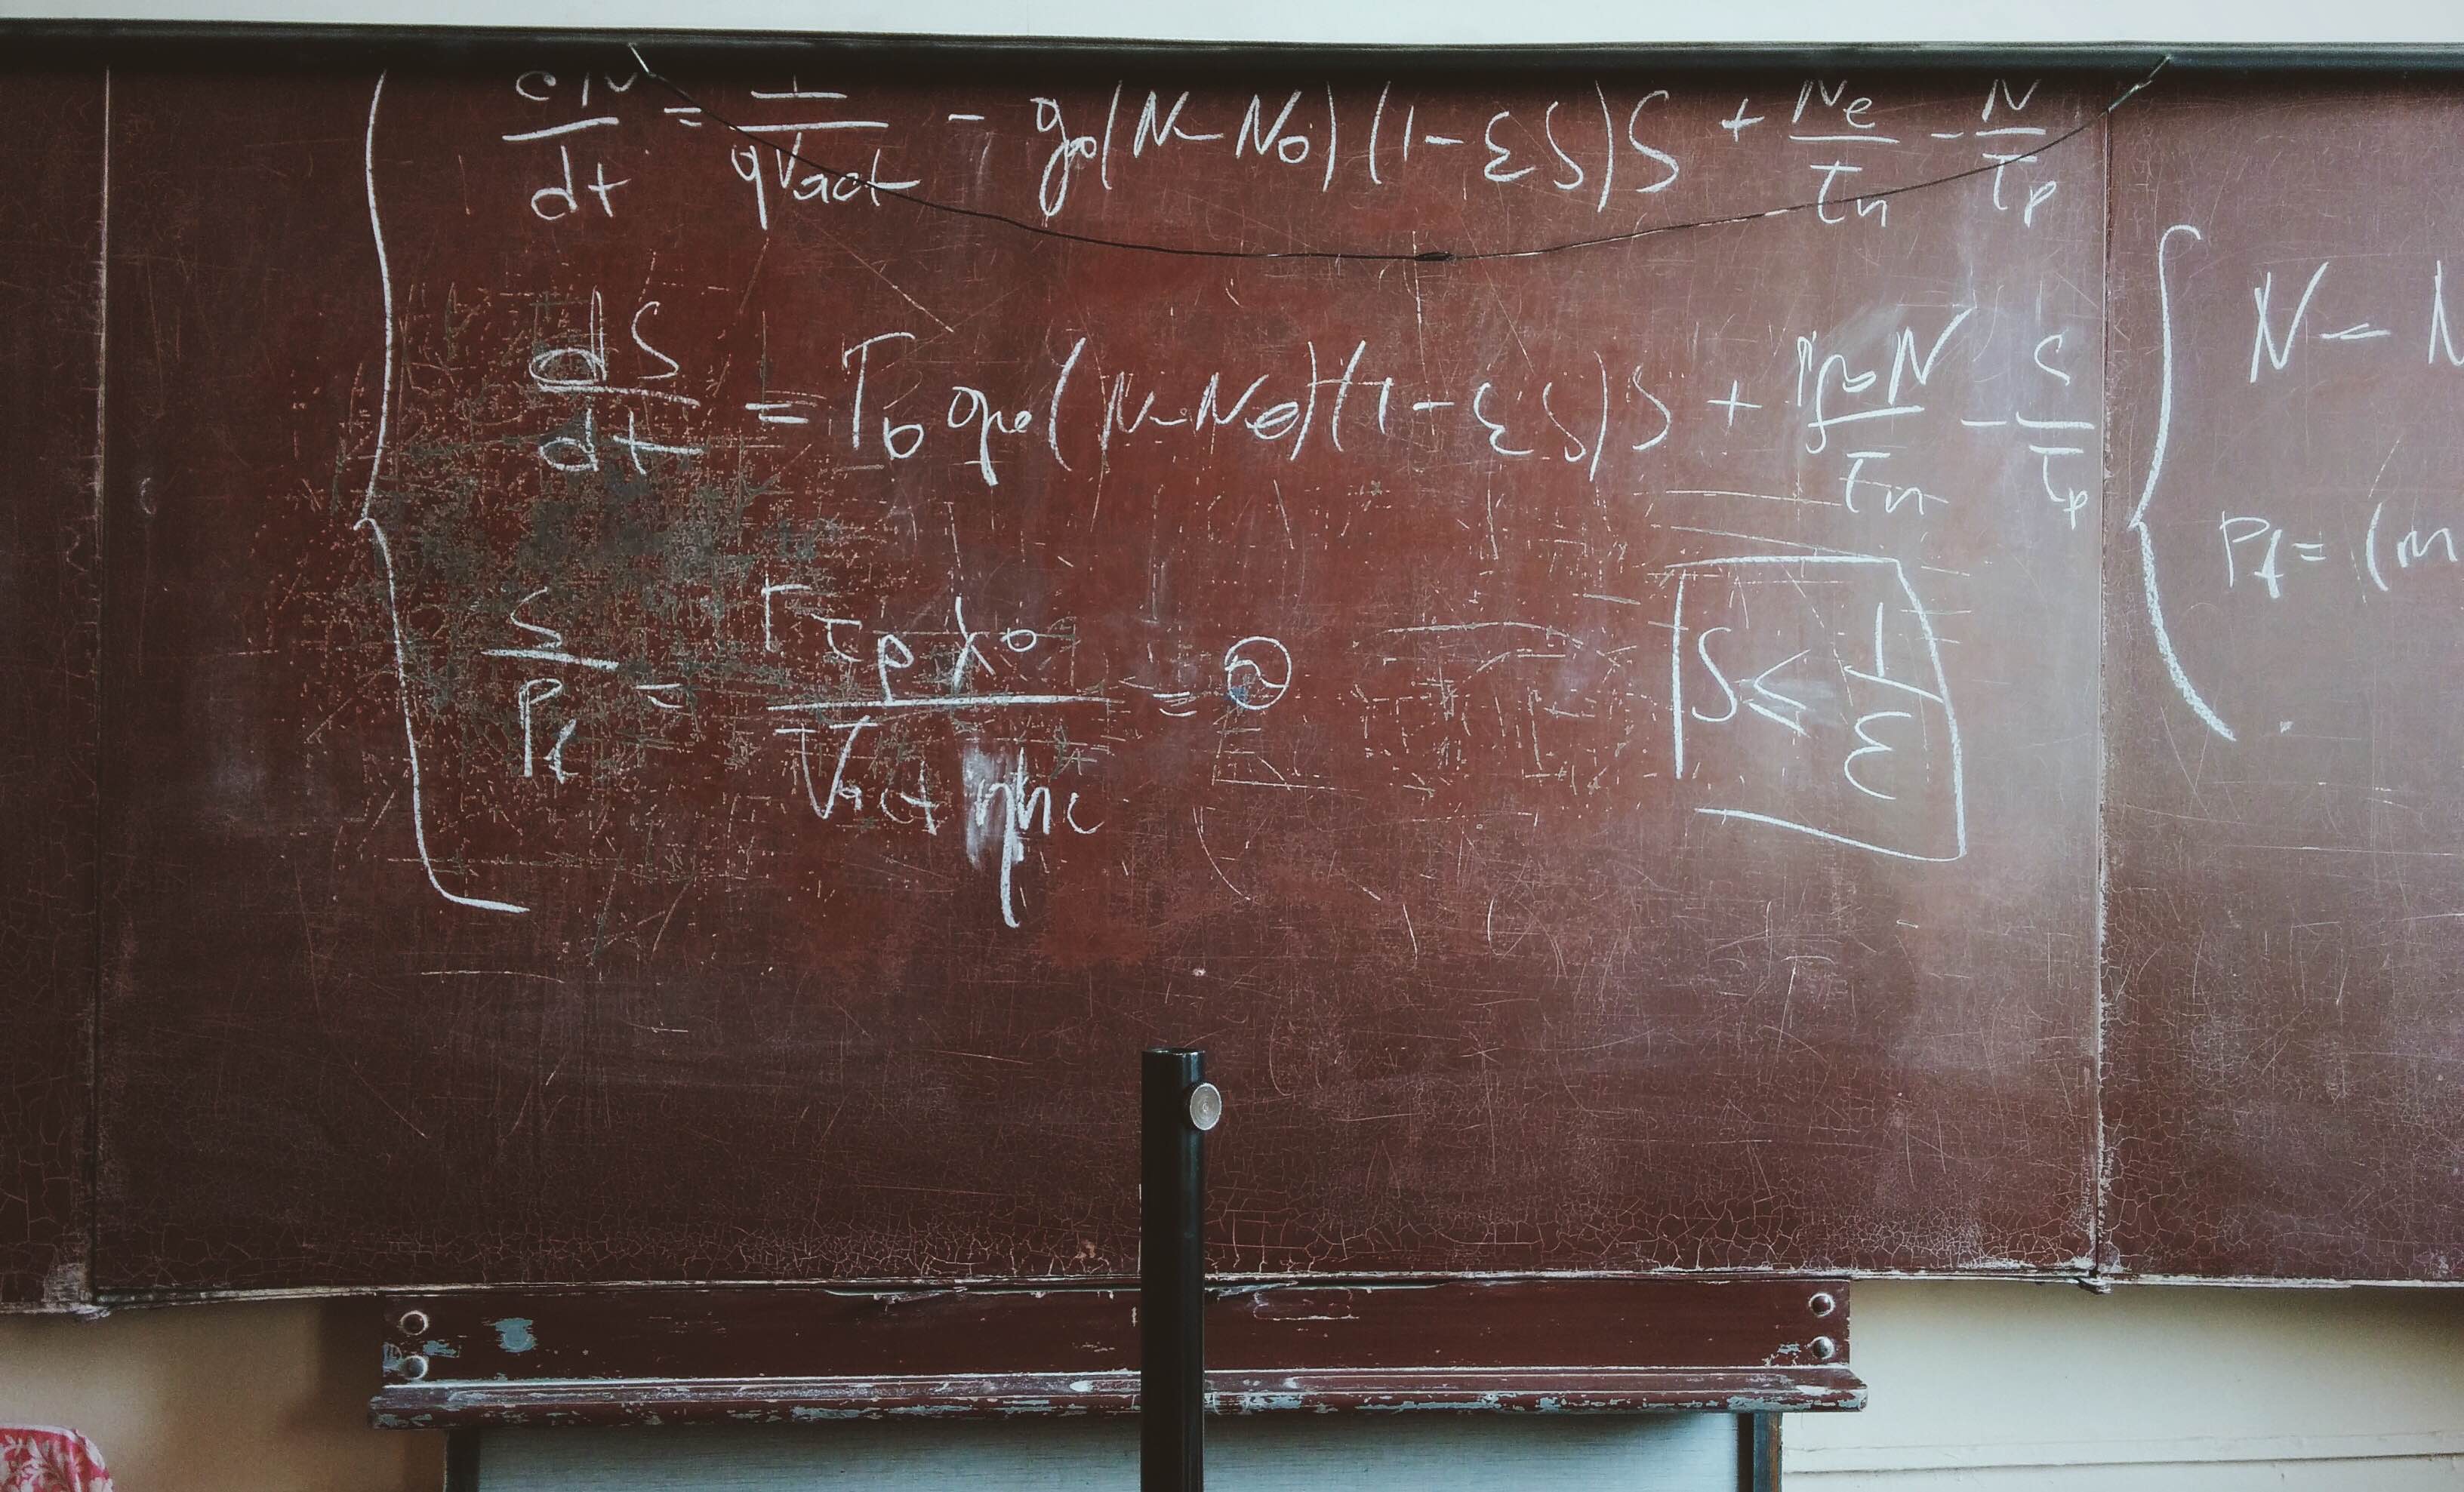 dN/dt = I/qVact - g₀(N-N₀)(1-εS)S + Ne/τn - N/τp
dS/dt = Γ₀g₀(N-N₀)(1-εS)S + Γβ₀N/τn - S/τp
S/Pf = Γτpλ₀/Vactηhc =
S ≤ 1/ε
N - N
Pf = (m